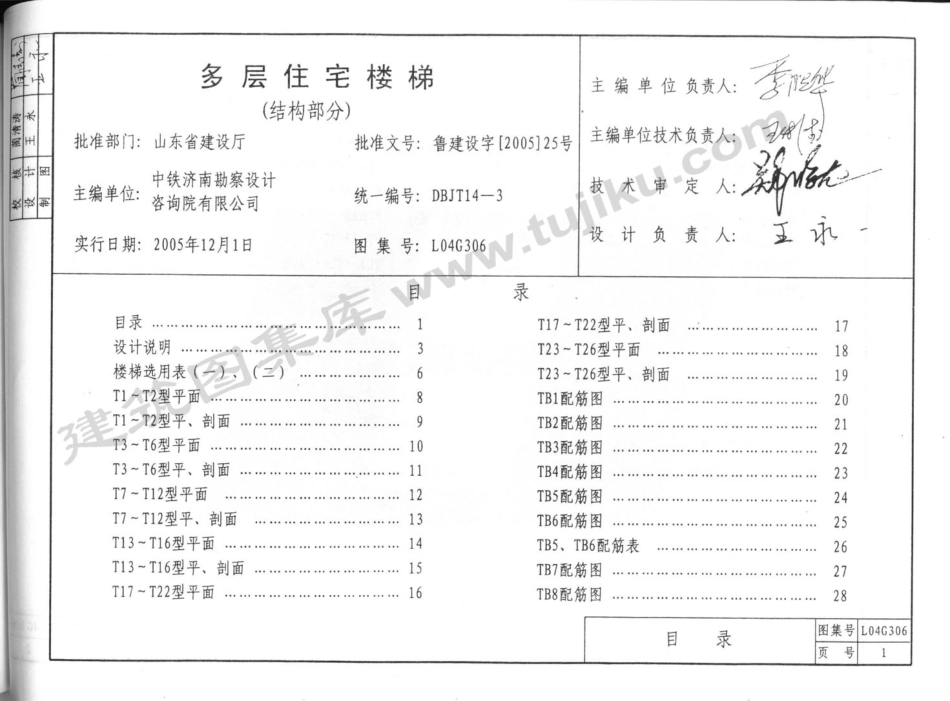 多层住宅楼梯
(结构部分)
批准部门: 山东省建设厅
批准文号: 鲁建设字[2005]25号
主编单位: 中铁济南勘察设计
咨询院有限公司
统一编号: DBJT14—3
实行日期: 2005年12月1日
图集号: L04G306
主编单位负责人:
主编单位技术负责人:
技术审定人:
设计负责人: 王永一
目 录
目录 …… 1
设计说明 …… 3
楼梯选用表(一)、(二) …… 6
T1~T2型平面 …… 8
T1~T2型平、剖面 …… 9
T3~T6型平面 …… 10
T3~T6型平、剖面 …… 11
T7~T12型平面 …… 12
T7~T12型平、剖面 …… 13
T13~T16型平面 …… 14
T13~T16型平、剖面 …… 15
T17~T22型平面 …… 16
T17~T22型平、剖面 …… 17
T23~T26型平面 …… 18
T23~T26型平、剖面 …… 19
TB1配筋图 …… 20
TB2配筋图 …… 21
TB3配筋图 …… 22
TB4配筋图 …… 23
TB5配筋图 …… 24
TB6配筋图 …… 25
TB5、TB6配筋表 …… 26
TB7配筋图 …… 27
TB8配筋图 …… 28
目 录
图集号 L04G306
页 号 1
校核
设计 王永
制图
建筑图集库 www.tujiku.com